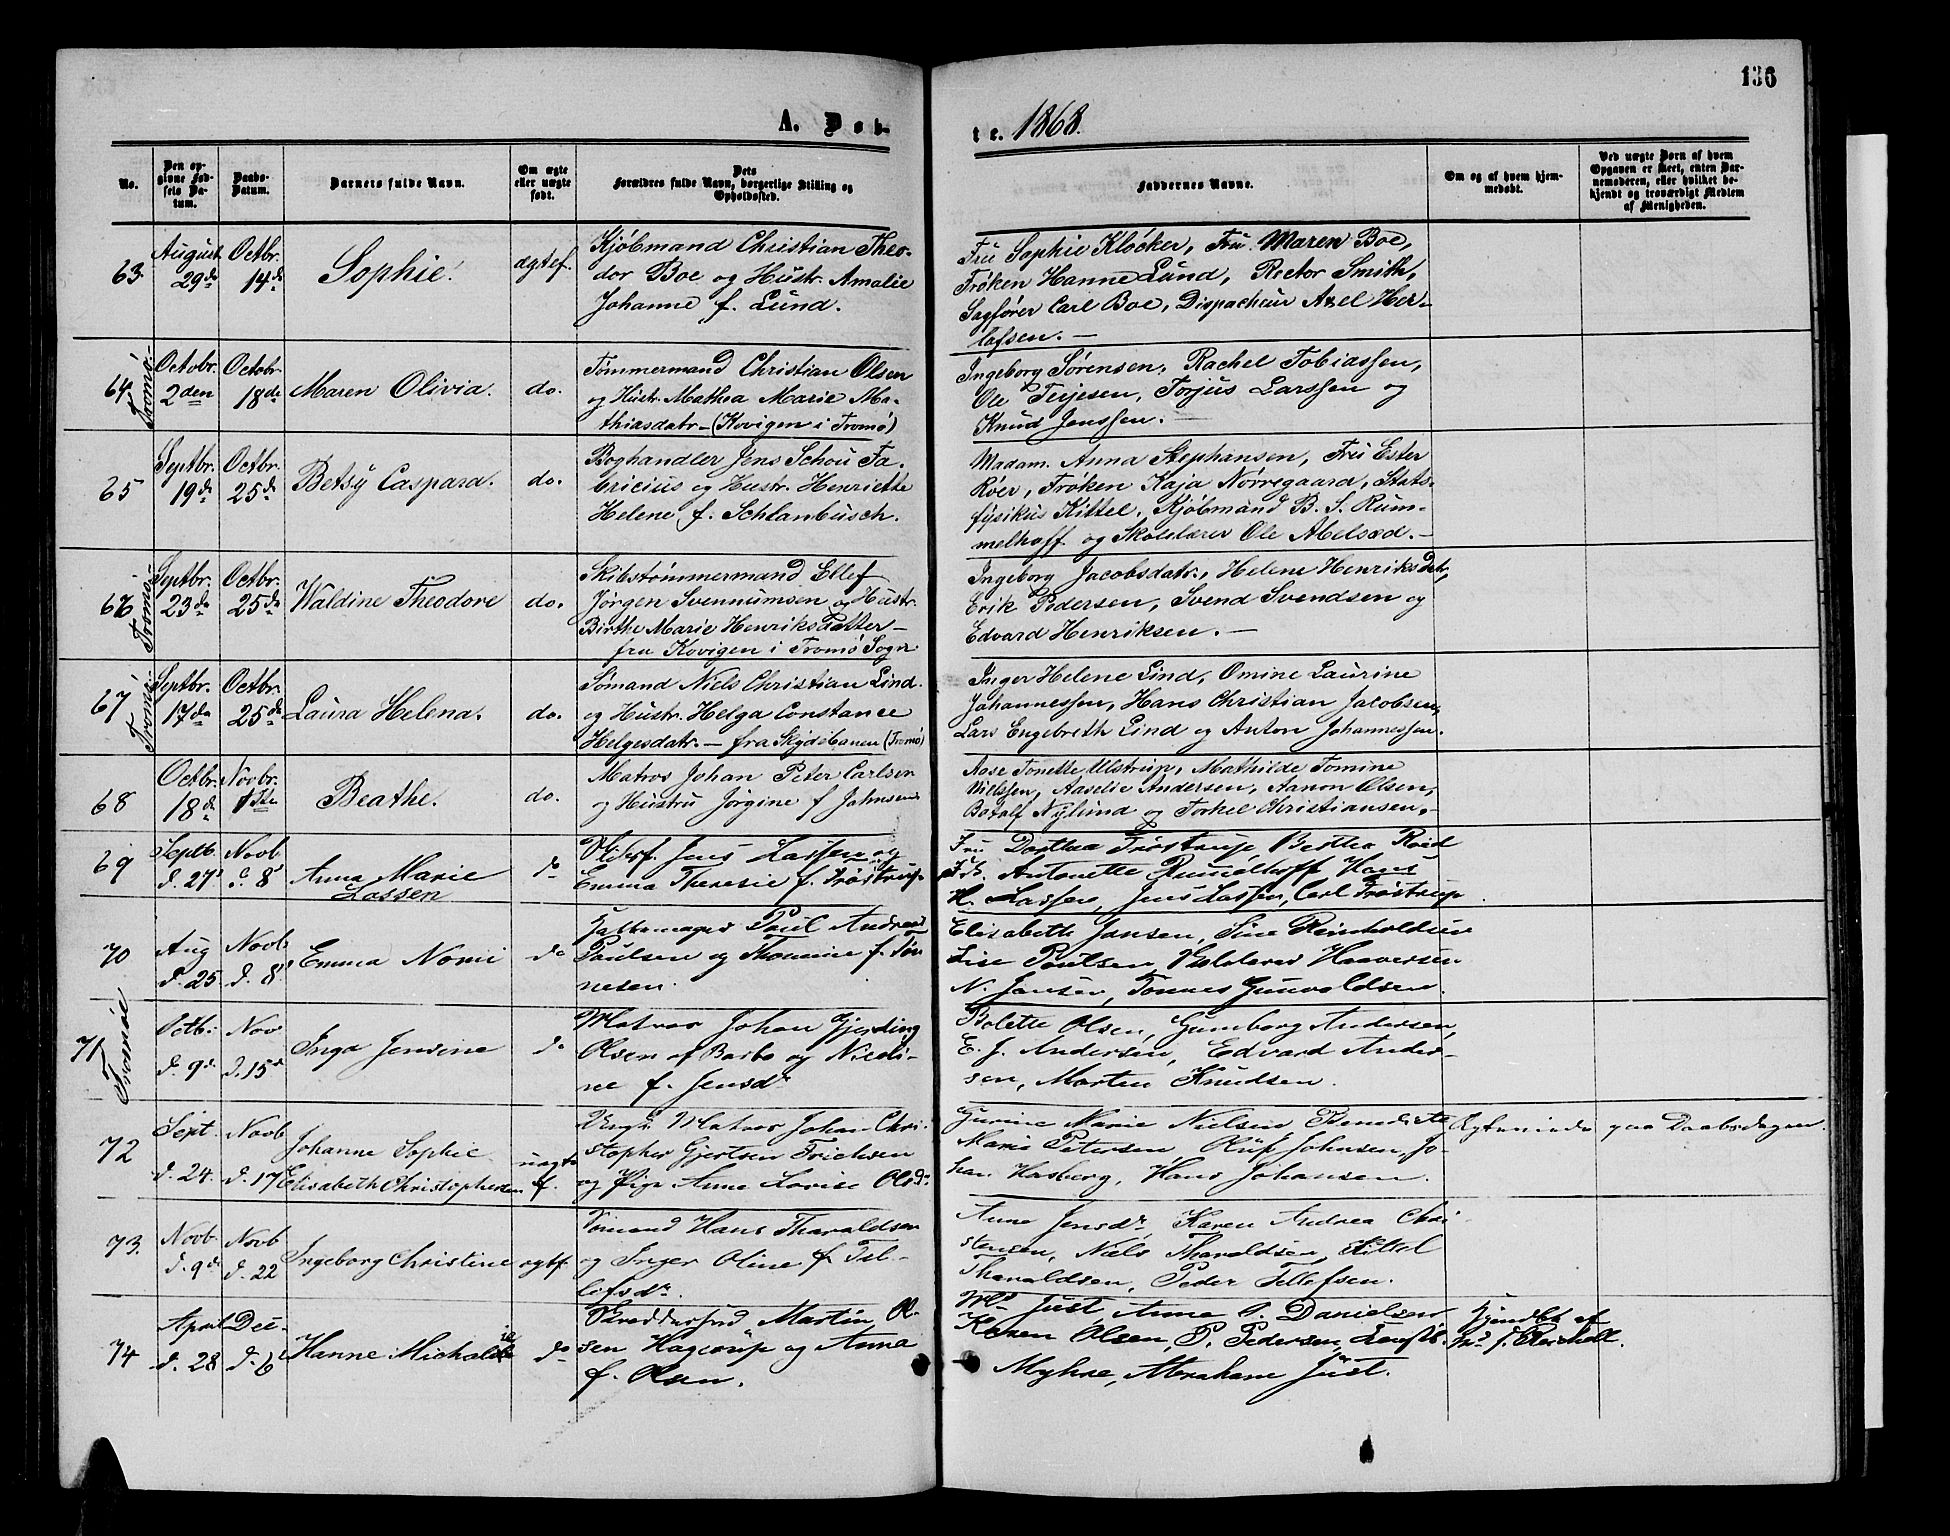 136
A. Døb-
te. 1868.
No.
Den opgivne Fødsels Datum.
Daabs-Datum.
Barnets fulde Navn.
Om ægte eller uægte født.
Dets Forældres fulde Navn, borgerlige Stilling og Opholdssted.
Faddernes Navne.
Om og af hvem hjemmedøbt.
Ved uægte Børn af hvem Opgaven er skeet, enten Barnemoderen, eller hvilket bekjendt og troværdigt Medlem af Menigheden.
63. August 29de Octbr. 14de Sophie. ægtef.
Kjøbmand Christian Theo-
dor Boe og Hustr. Amalie
Johanne f. Lund.
Fru Sophie Kløcker, Fru Maren Boe,
Frøken Hanne Lund, Rector Smith,
Sagfører Carl Boe, Dispacheur Axel Her-
lofsen.
64 Tromø. Octobr. 2den Octobr. 18de Maren Olivia. do.
Tømmermand Christian Olsen
og Hustr. Mathea Marie Ma-
thiasdatr. (Kovigen i Tromø)
Ingeborg Sørensen, Rachel Tobiassen,
Ole Terjesen, Torjus Larssen og
Knud Jenssen.
65 Septbr. 19de Octbr. 25de Betsy Caspara. do.
Boghandler Jens Schou Fa-
bricius og Hustr. Henriette
Helene f. Schlanbusch.
Madam. Anna Stephansen, Fru Ester
Röer, Frøken Kaja Nørregaard, Stats-
fysikus Kittel, Kjøbmand B. S. Rum-
melhoff og Skolelærer Ole Abelsed.
66 Tromø. Septbr. 23de Octbr. 25de Waldine Theodore do.
Skibstømmermand Ellef
Jørgen Svennumsen og Hustr.
Birthe Marie Henriksdatter
fra Kovigen i Tromø Sogn
Ingeborg Jacobsdatr., Helene Henriksdatr,
Erik Pedersen, Svend Svendsen og
Edvard Henriksen.
67 Tromø. Septbr. 17de Octbr. 25de Laura Helena. do.
Sømand Niels Christian Lind.
og Hustr. Helga Constance
Helgesdatr. – fra Skydebanen (Tromø)
Inger Helene Lind, Omine Laurine
Johannessen, Hans Christian Jacobsen,
Lars Engebreth Lind og Anton Johannessen.
68 Octbr. 18de Novbr. 1ste Beathe. do.
Matros Johan Peter Carlsen
og Hustru Jørgine f Jahnsen
Aase Tonette Ulstrup, Mathilde Tomine
Nielssen, Aaselie Andersen, Aanon Olsen,
Botolf Nylund og Torkel Christiansen.
69 Septb. d. 27 Novb. d. 8 Anna Marie
Lassen do
Jens Lassen og
Emma Theresie f. Trøstrup
Fru Dorthea Trøstrup Berthea Roed
Antonette Rumelhoff Hans
H. Lassen, Jens Lassen, Carl Trøstrup
70 Aug d. 25 Novb. d. 8 Emma Nomi do
Paul Andreas
Paulsen og Thomine f. Tøn
nesen.
Elisabeth Jansen, Sine Reinholdsen
Lise Paulsen, Haaversen
N. Jansen, Tønnes Gunvaldsen.
71 Tromøe Octb. d. 9de Nov d. 15de Inga Jensine do
Matros Johan Gjerding
Olsen af Barbo og Nicoli-
ne f. Jensdr
Bolette Olsen, Gunnborg Andersen,
E. J. Andersen, Edvard Ander-
sen, Morten Knudsen.
72 Sept. d. 24. Novb d. 17 Johanne Sophie
Elisabeth Christophersen uægte f.
Ungk. Matros Johan Chri-
stopher Gjertsen Erichsen
og Pige Anne Lovise Olsdr
Gurine Marie Nielsen Benedicte
Marie Petersen Oluf Johnsen, Jo-
han Hasberg, Hans Johansen.
paa Daabsdagen.
73. Novb. d. 9de Novb d. 22 Ingeborg Christine ægtf.
Sømand Hans Tharaldsen
og Inger Oline f. Tel-
lefsdr.
Anne Jensdr, Karen Andrea Chri-
stensen, Niels Tharaldsen, Kittel
Tharaldsen, Peder Tellefsen.
74 April d. 28 Dec. d. 6 Hanne Michaline do
Skræddersvd Martin Ol-
sen Hagerup og Anne
f. Olsen.
Md Just, Anne G. Danielsen,
Karen Olsen, P. Pedersen,
Myhre, Abraham Just.
Hjemdøbt af